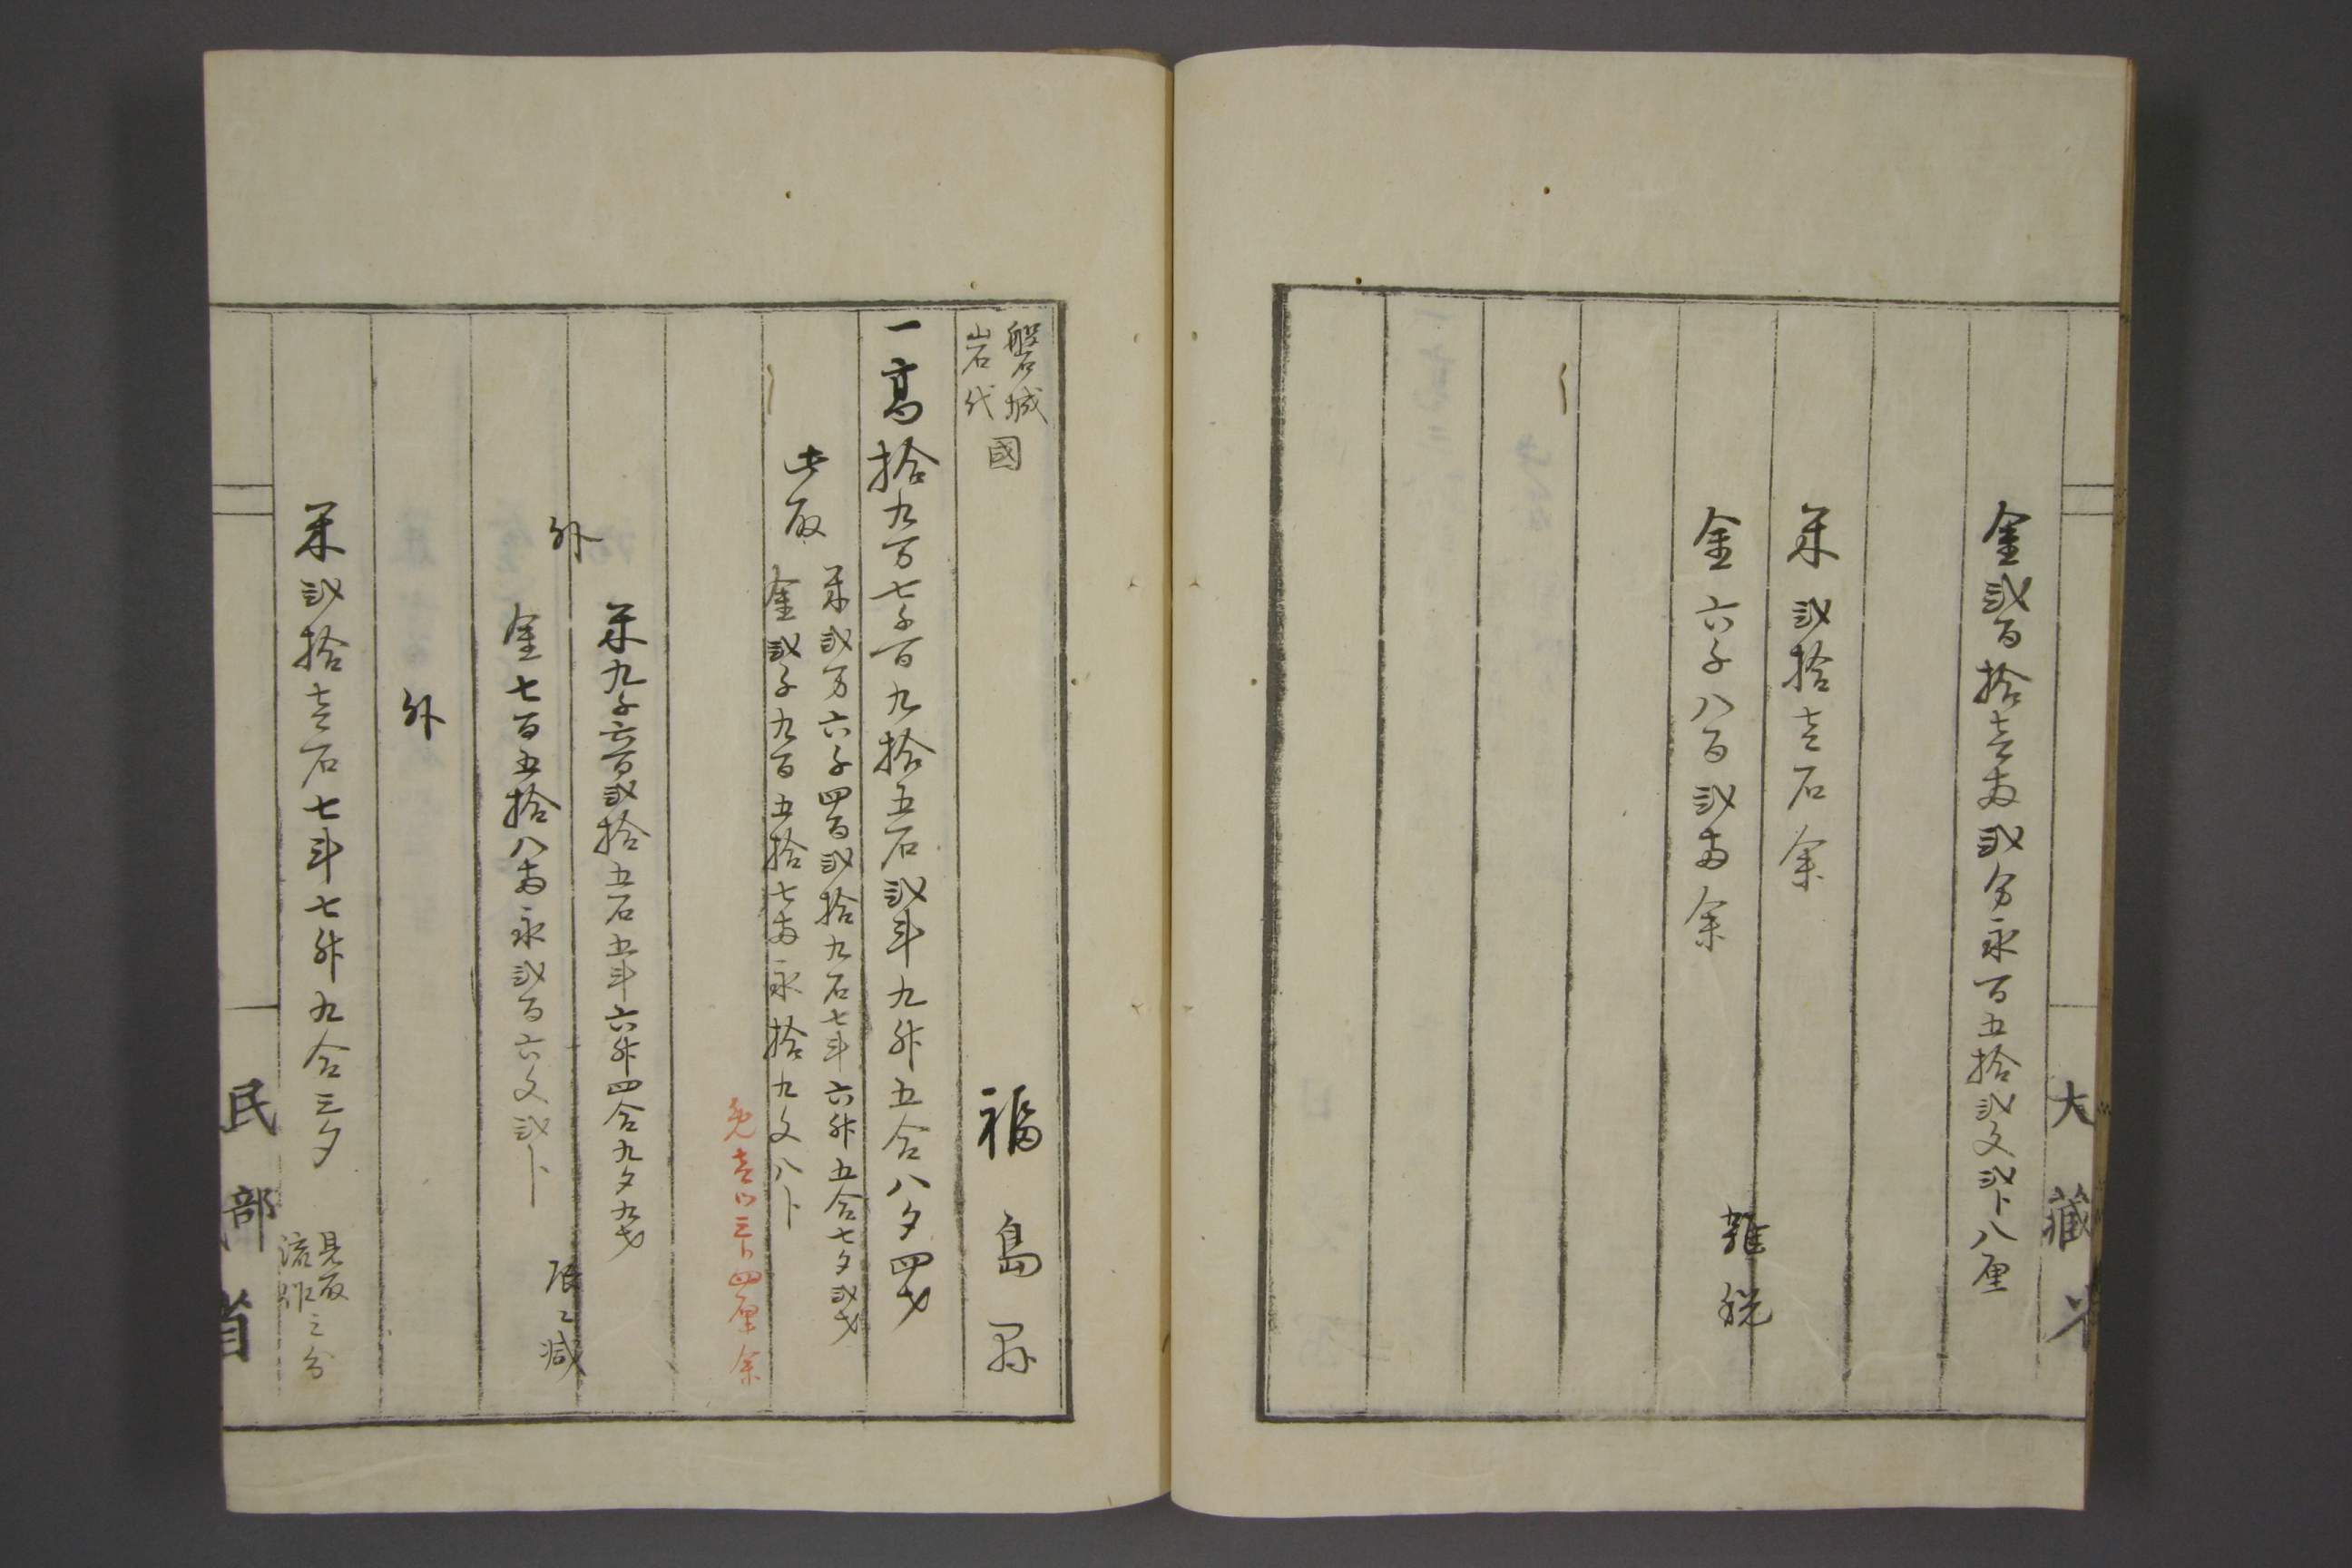 金弐百拾壱両弐分永百五拾弐文弐卜八厘
米弐拾壱石余
金六千八百弐両余
雑税
大藏省
磐城
岩代
國
福島県
一高拾九万七千百九拾五石弐斗九升五合八夕四才
此取
米弐万六千四百弐拾九石七斗六升五合七夕弐才
金弐千九百五拾七両永拾九文八卜
免壱ツ三卜四厘余
外
米九千六百弐拾五石五斗六升四合九夕九才
金七百五拾八両永弐百六文弐卜
辰ニ減
外
米弐拾壱石七斗七升九合三夕
見取
流作
之分
民部省